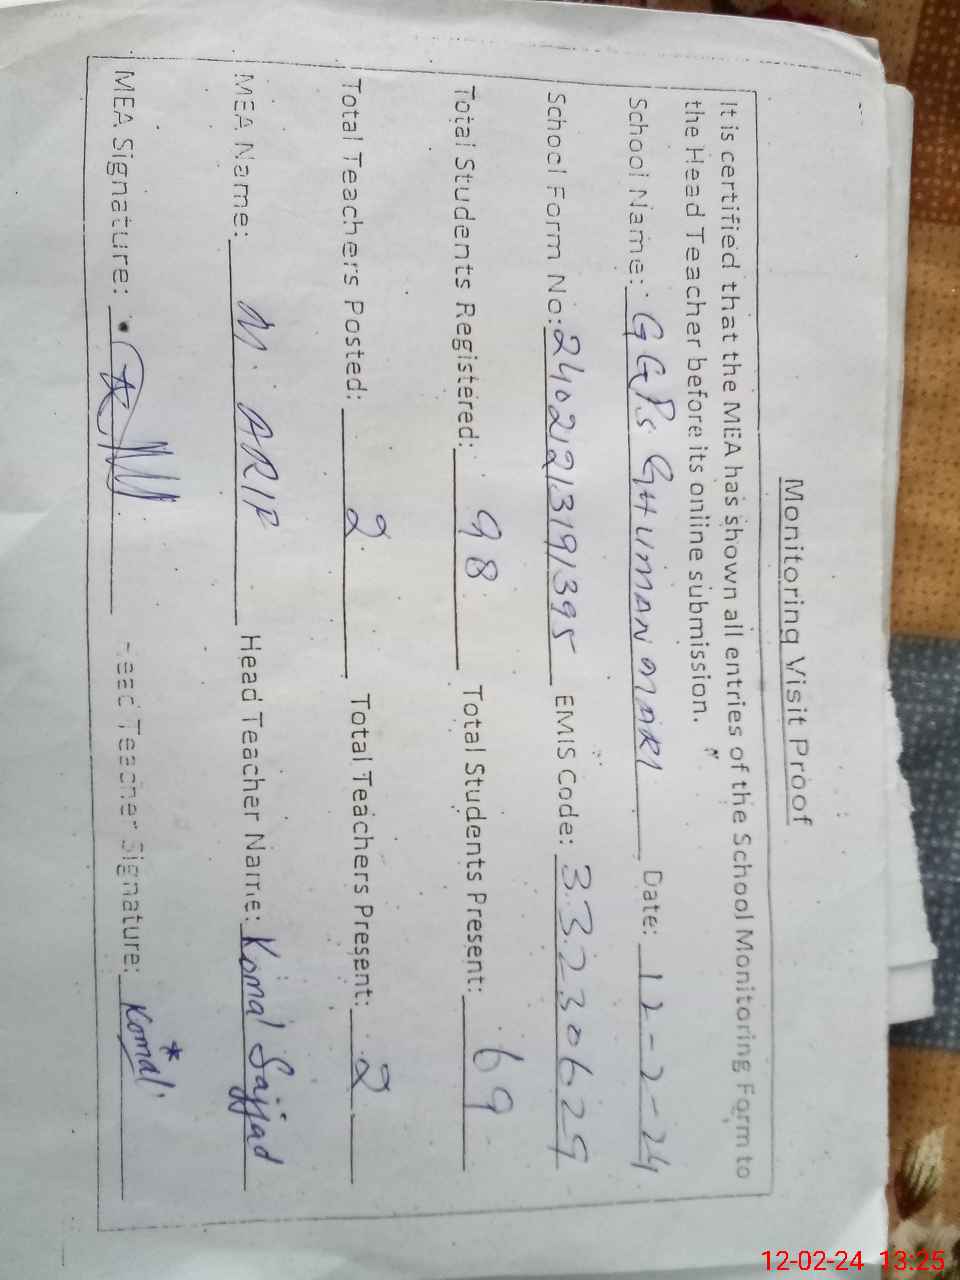 Monitoring Visit Proof
It is certified that the MEA has shown all entries of the School Monitoring Form to
the Head Teacher before its online submission.
School Name: GGPS GHUMAN MARI Date: 12-2-24
School Form No: 2402213191395 EMIS Code: 33230629
Total Students Registered: 98 Total Students Present: 69
Total Teachers Posted: 2 Total Teachers Present: 2
MEA Name: M. ARIF Head Teacher Name: Komal Sajjad
MEA Signature: Head Teacher Signature: Komal
12-02-24 13:25